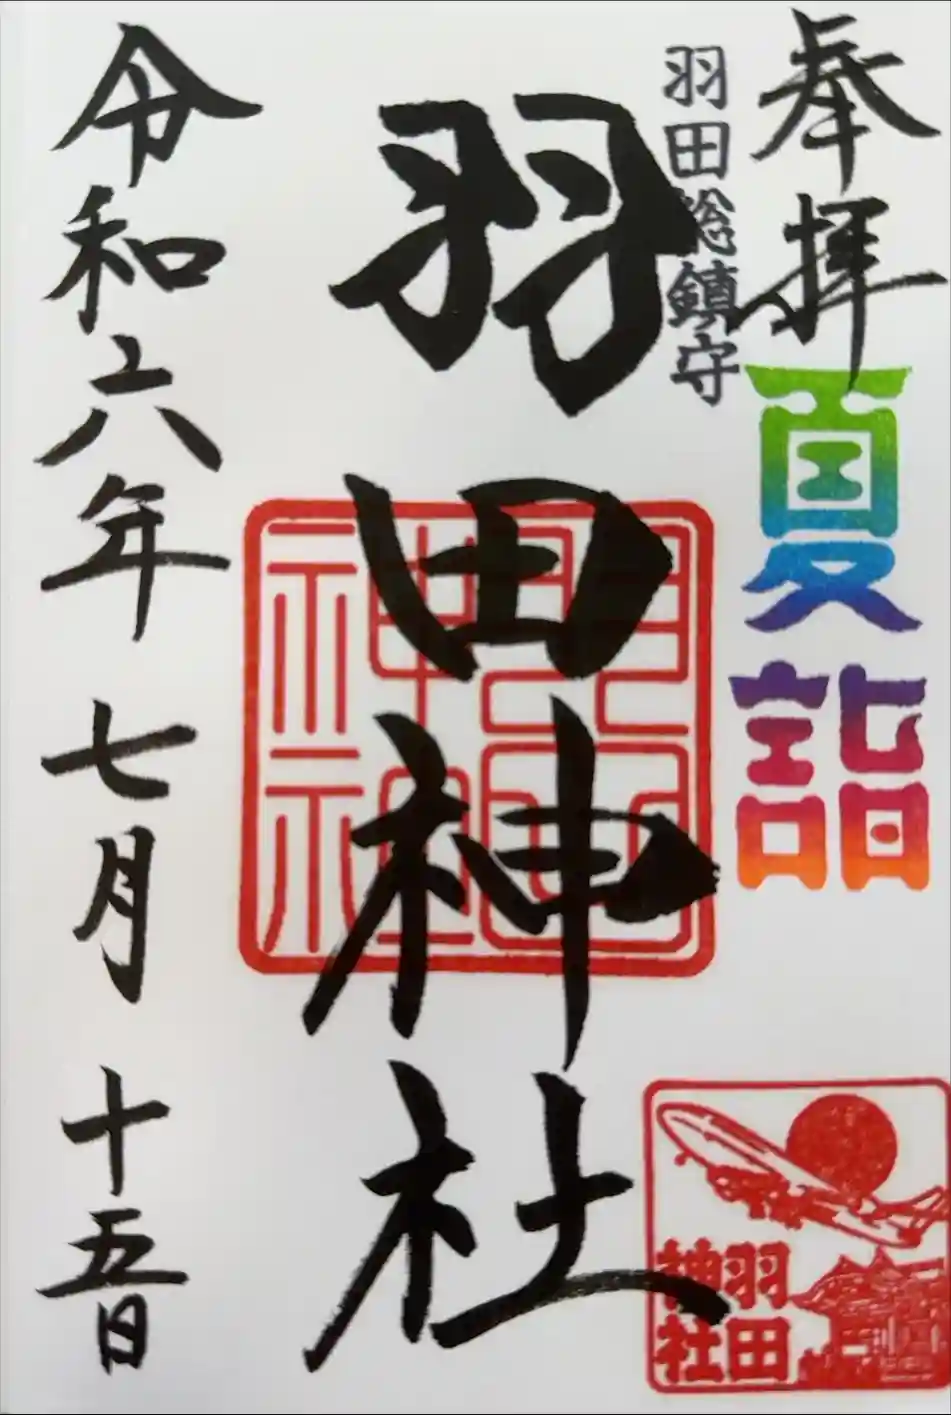 奉拝
夏詣
羽田総鎮守
羽田神社
羽田
神社
令和六年七月十五日